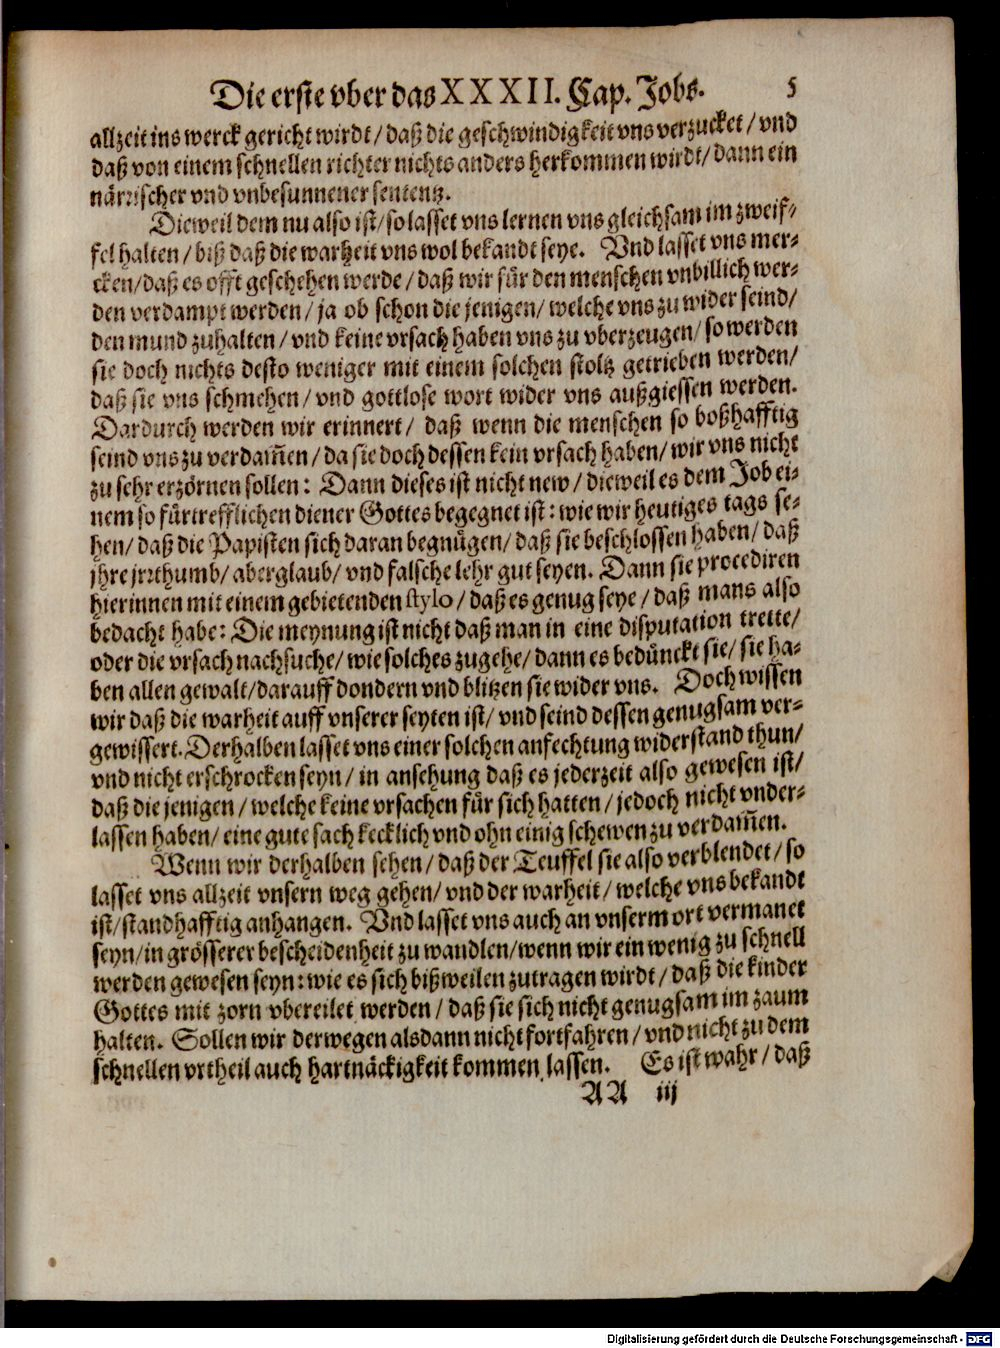 Die erste vber das XXXII. Cap. Jobs. 5
allzeit ins werck gericht wirdt/ daß die geschwindigkeit vns verzucket/ vnd
daß von einem schnellen richter nichts anders herkommen wirdt/ dann ein
närrischer vnd vnbesunnener sententz.
Dieweil dem nu also ist/ so lasset vns lernen vns gleichsam im zweif-
fel halten/ biß daß die warheit vns wol bekandt seye. Vnd lasset vns mer-
cken/ daß es offt geschehen werde/ daß wir für den menschen vnbillich wer-
den verdampt werden/ ja ob schon die jenigen/ welche vns zu wider seind/
den mund zuhalten/ vnd keine vrsach haben vns zu vberzeugen/ so werden
sie doch nichts desto weniger mit einem solchen stoltz getrieben werden/
daß sie vns schmehen/ vnd gottlose wort wider vns außgiessen werden.
Dardurch werden wir erinnert/ daß wenn die menschen so boßhafftig
seind vns zu verdam̃en/ da sie doch dessen kein vrsach haben/ wir vns nicht
zu sehr erzörnen sollen: Dann dieses ist nicht new/ dieweil es dem Job ei-
nem so fürtrefflichen diener Gottes begegnet ist: wie wir heutiges tags se-
hen/ daß die Papisten sich daran begnügen/ daß sie beschlossen haben/ daß
jhre jrrthumb/ aberglaub/ vnd falsche lehr gut seyen. Dann sie procediren
hierinnen mit einem gebietenden stylo/ daß es genug seye/ daß mans also
bedacht habe: Die meynung ist nicht daß man in eine disputation trette/
oder die vrsach nachsuche/ wie solches zugehe/ dann es bedünckt sie/ sie ha-
ben allen gewalt/ darauff dondern vnd blitzen sie wider vns. Doch wissen
wir daß die warheit auff vnserer seyten ist/ vnd seind dessen genugsam ver-
gewissert. Derhalben lasset vns einer solchen anfechtung widerstand thun/
vnd nicht erschrocken seyn/ in ansehung daß es jederzeit also gewesen ist/
daß die jenigen/ welche keine vrsachen für sich hatten/ jedoch nicht vnder-
lassen haben/ eine gute sach kecklich vnd ohn einig schewen zu verdam̃en.
Wenn wir derhalben sehen/ daß der Teuffel sie also verblendet/ so
lasset vns allzeit vnsern weg gehen/ vnd der warheit/ welche vns bekandt
ist/ standhafftig anhangen. Vnd lasset vns auch an vnserm ort vermanet
seyn/ in grösserer bescheidenheit zu wandlen/ wenn wir ein wenig zu schnell
werden gewesen seyn: wie es sich bißweilen zutragen wirdt/ daß die kinder
Gottes mit zorn vbereilet werden/ daß sie sich nicht genugsam im zaum
halten. Sollen wir derwegen alsdann nicht fortfahren/ vnd nicht zu dem
schnellen vrtheil auch hartnäckigkeit kommen lassen. Es ist wahr/ daß
AA iij
Digitalisierung gefördert durch die Deutsche Forschungsgemeinschaft - DFG